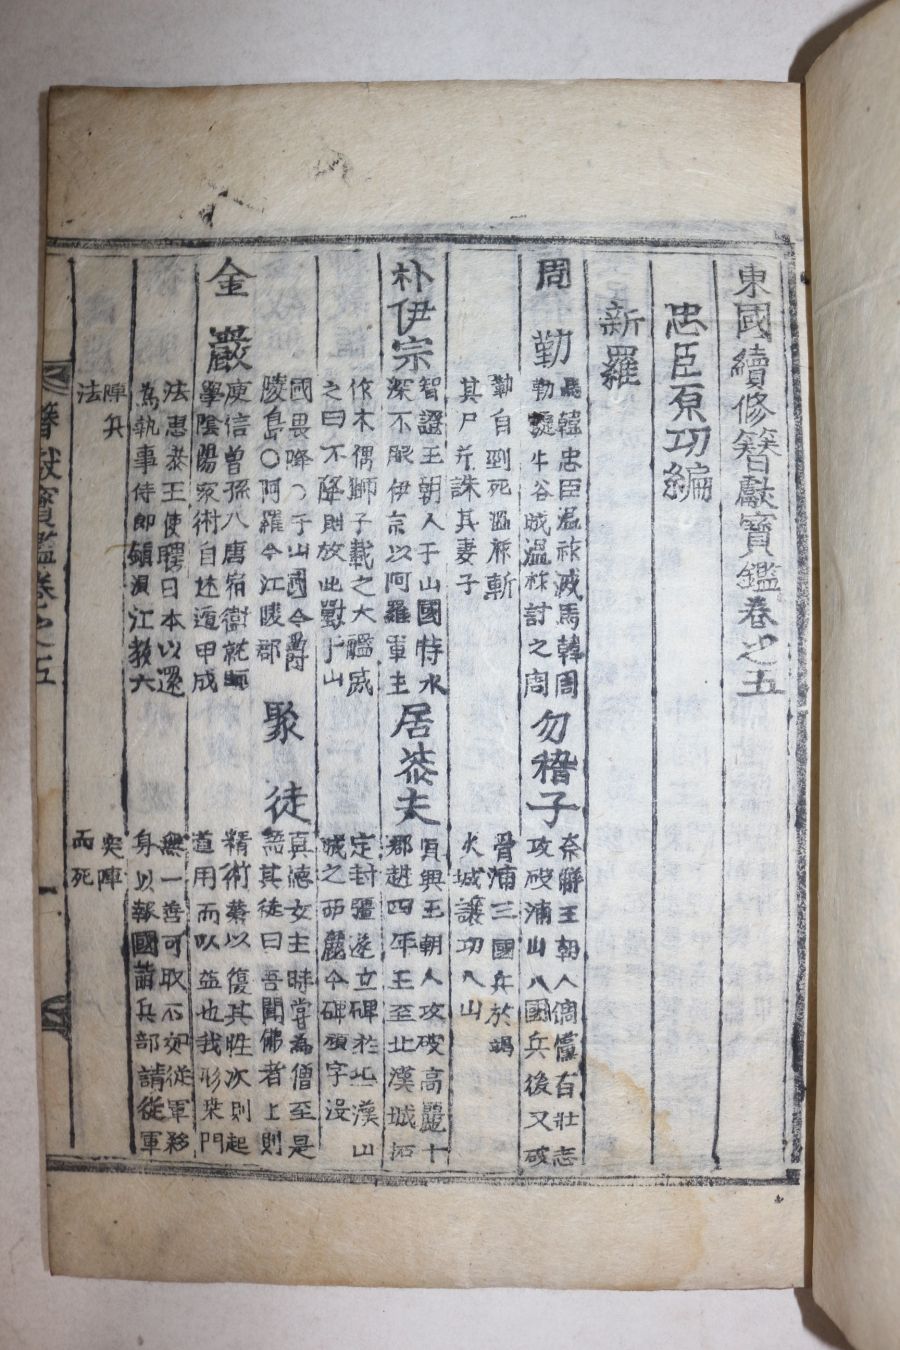 東國續修簪獻寶鑑卷之五
忠臣原功編
新羅
周勤
馬韓忠臣溫祚滅馬韓周
勤據牛谷城溫祚討之周
勤自剄死溫祚斬
其尸并誅其妻子
勿稽子
奈解王朝人倜儻有壯志
攻破浦山八國兵後又破
骨浦三國兵於竭
火城讓功入山
朴伊宗
智證王朝人于山國恃水
深不服伊宗以阿羅軍主
作木偶獅子載之大艦威
之曰不降則放此獸于山
國畏降○于山國今爵
陵島○阿羅今江陵郡
居柒夫
眞興王朝人攻破高麗十
郡進四年王至北漢城拓
定封疆遂立碑於北漢山
城之西麗今碑頑字沒
聚徒
眞德女主時嘗為僧至是
語其徒曰吾聞佛者上則
精術業以復其性次則起
道用而以益也我形桒門
無一善可取不如從軍殺
身以報國著兵部請從軍
突陣
而死
金巖
庾信曾孫入唐宿衛就師
學陰陽家術自述遁甲成
法惠恭王使聘日本以還
為執事侍郎鎭浿江教六
陣兵
法
簪獻寶鑑卷之五
一